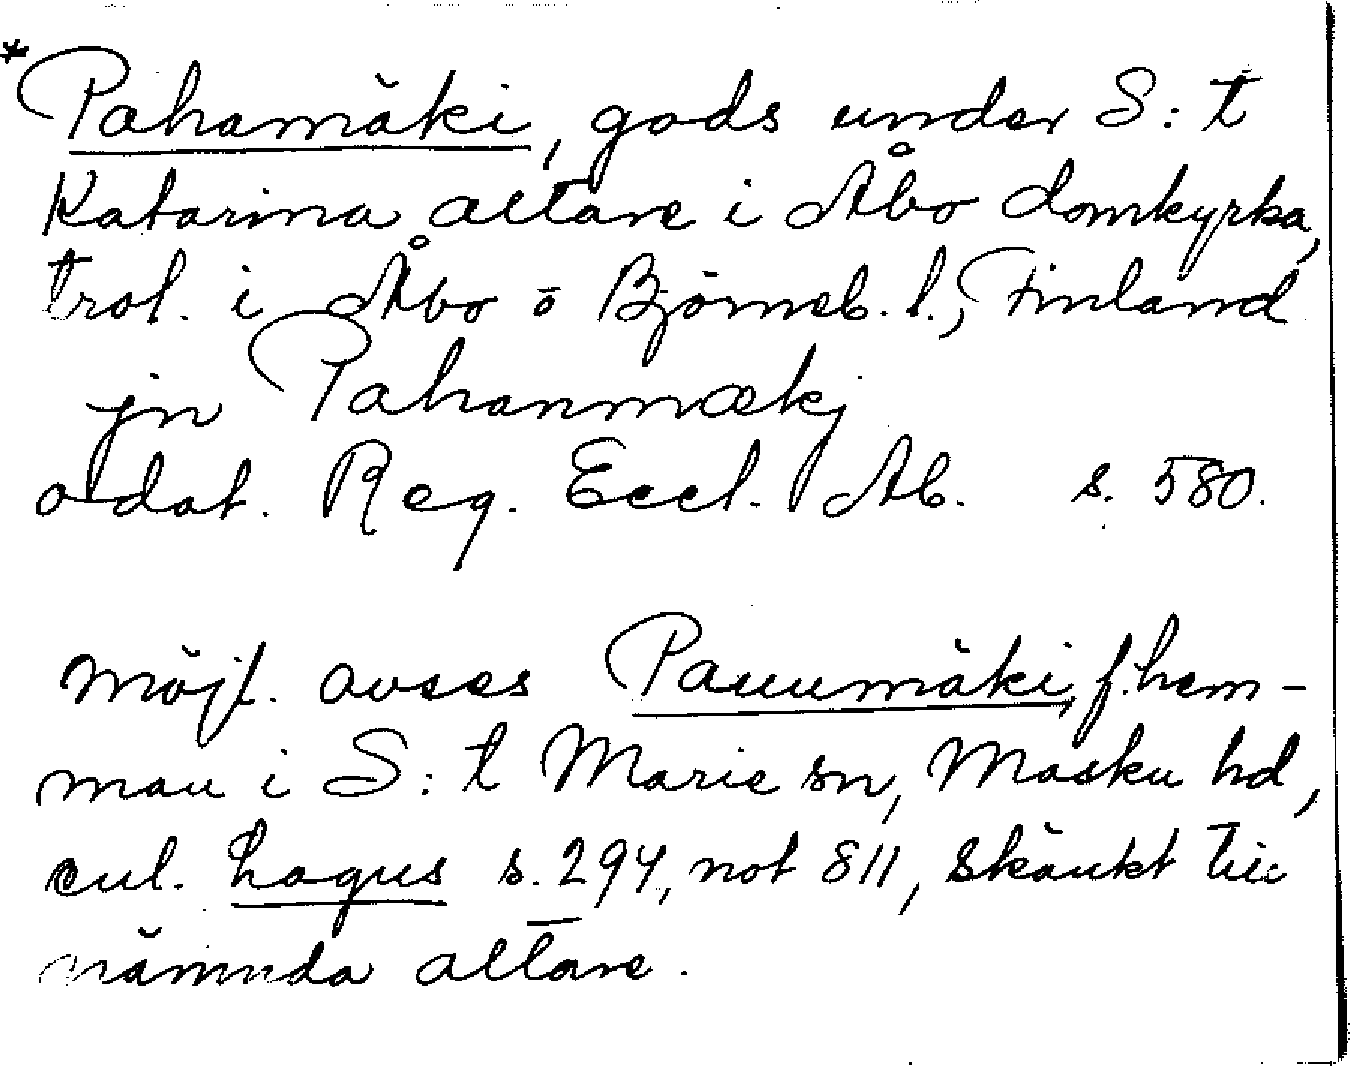 *Pahamäki, gods under S:t
Katarina altare i Åbo domkyrka,
trol. i Åbo o Björneb. l., Finland
jn Pahanmækj
odat. Reg. Eccl. Ab. s. 580.
möjl. avses Paunmäki, f. hem-
man i S:t Marie sn, Masku hd,
enl. Hagus s. 294, not 811, skänkt till
nämnda altare.